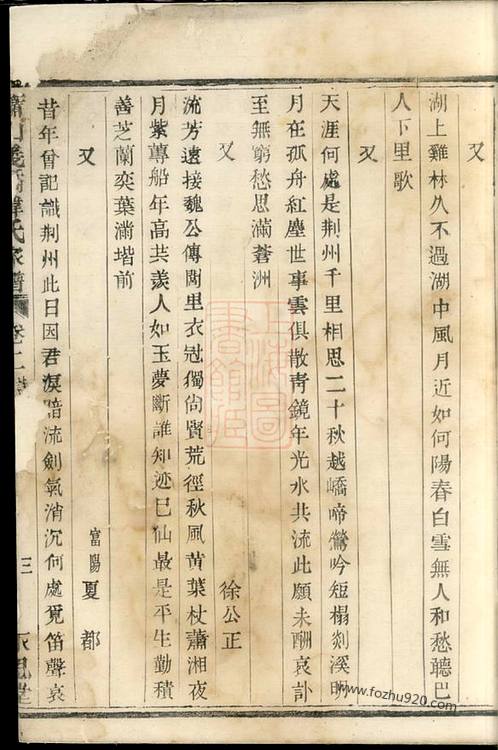 又
湖上雞林久不過湖中風月近如何陽春白雪無人和愁聽巴
人下里歌
又
天涯何處是荆州千里相思二十秋越嶠啼鶯吟短榻剡溪明
月在孤舟紅塵世事雲俱散青鏡年光水共流此願未酬哀訃
至無窮愁思滿蒼洲
又 徐公正
流芳遠接魏公傳閭里衣冠獨尙賢荒徑秋風黄葉杖瀟湘夜
月紫蓴船年高共羡人如玉夢斷誰知迹巳仙最是平生勤積
善芝蘭奕葉滿堦前
又 富陽夏 都
昔年曾記識荆州此日因君淚暗流劍氣消沉何處覓笛聲哀
蕭山義橋韓氏家譜 卷二 三
上海圖書館藏
www.fozhu920.com